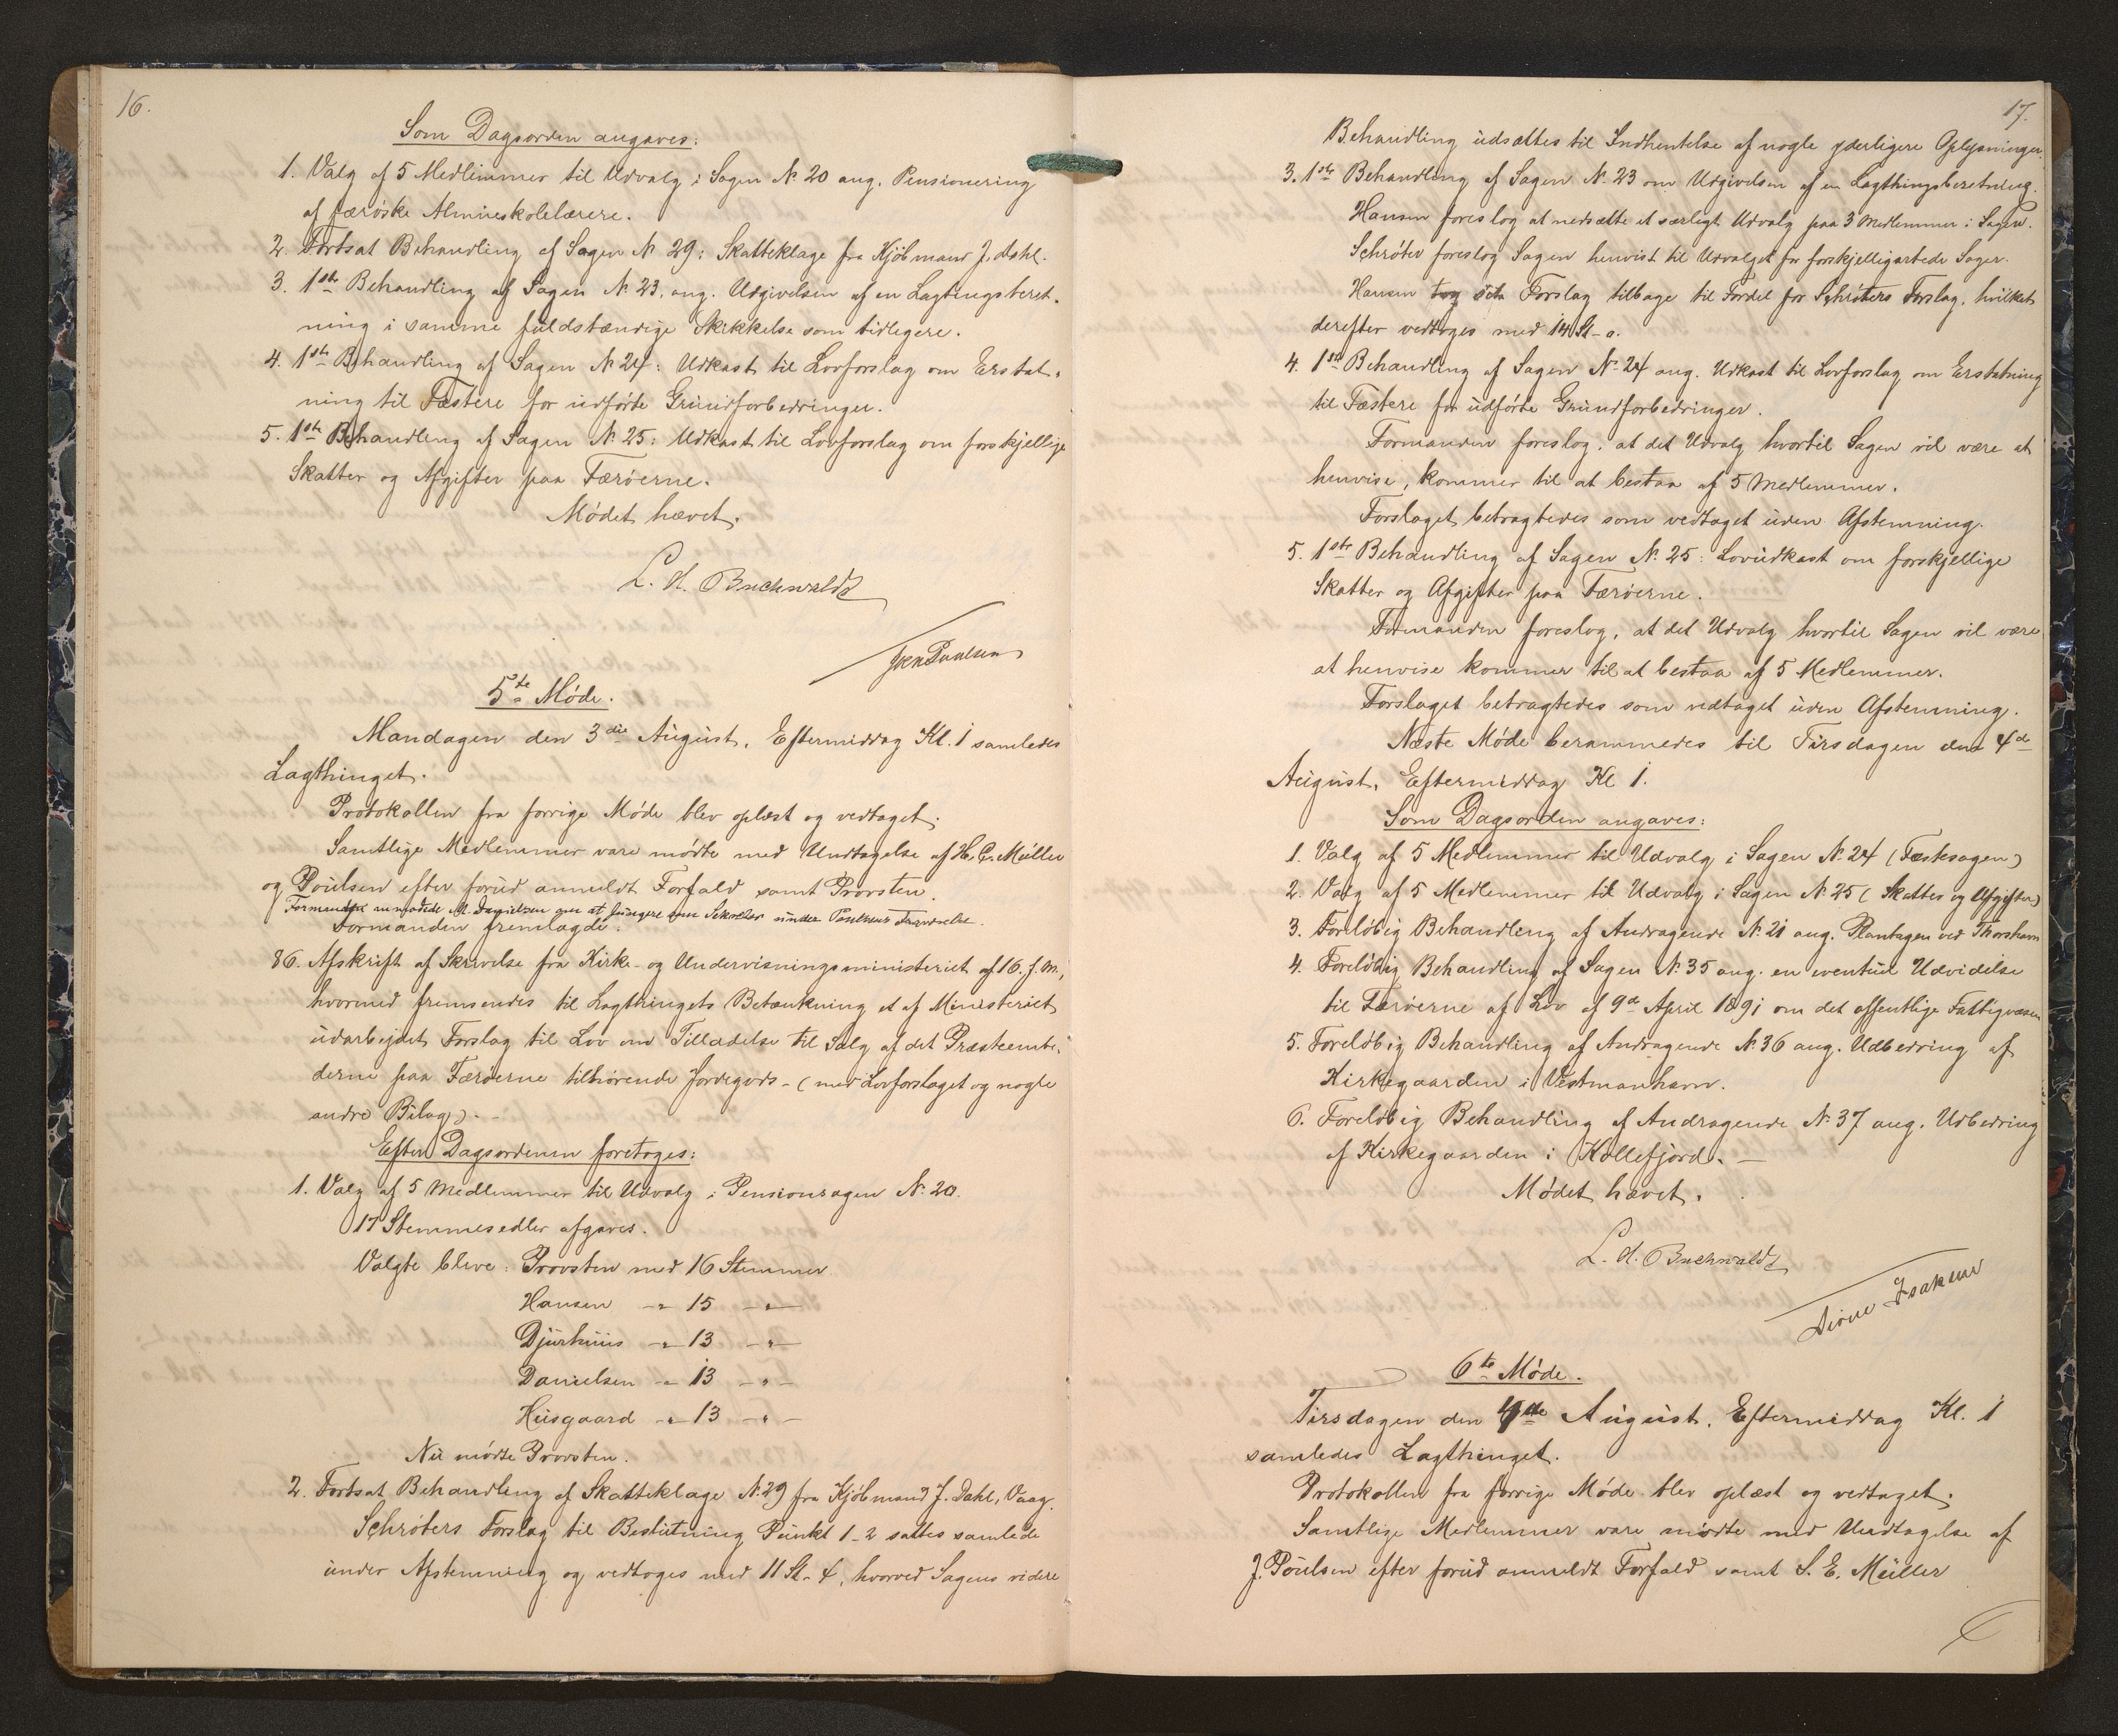 16.
Som Dagsorden angaves:
1. Valg af 5 Medlemmer til Udvalg i Sagen N. 20 ang. Pensionering
af færøske Almueskolelærere.
2. Fortsat Behandling af Sagen N. 29: Skatteklage fra Kjøbmand J. Dahl.
3. 1ste Behandling af Sagen N. 23, ang. Udgivelsen af en Lagtingsberet-
ning i samme fuldstændige Skikkelse som tidligere.
4. 1ste Behandling af Sagen N. 24: Udkast til Lovforslag om Erstat-
ning til Fæstere for udførte Grundforbedringer.
5. 1ste Behandling af Sagen N. 25: Udkast til Lovforslag om forskjellige
Skatter og Afgifter paa Færøerne.
Mødet hævet.
L. A. Buchwaldt
Poulsen
5te Møde.
Mandagen den 3die August, Eftermiddag Kl. 1 samledes
Lagthinget.
Protokollen fra forrige Møde blev oplæst og vedtaget.
Samtlige Medlemmer vare mødte med Undtagelse af H. C. Müller
og Poulsen efter forud anmeldt Forfald samt Provsten.
Formanden anmodede M. Danielsen om at fungere som Sekretær under Poulsens Fraværelse.
Formanden fremlagde:
86. Afskrift af Skrivelse fra Kirke- og Undervisningsministeriet af 16. f. M.,
hvormed fremsendes til Lagthingets Betænkning et af Ministeriet
udarbejdet Forslag til Lov om Tilladelse til Salg af det Præsteembe-
derne paa Færøerne tilhørende Jordegods - (med Lovforslaget og nogle
andre Bilag). -
Efter Dagsordenen foretoges:
1. Valg af 5 Medlemmer til Udvalg i Pensionssagen N. 20.
17 Stemmesedler afgaves.
Valgte bleve: Provsten med 16 Stemmer
Hansen -„- 15 -„-
Djurhuus -„- 13 -„-
Danielsen -„- 13 -„-
Husgaard -„- 13 -„-
Nu mødte Provsten.
2. Fortsat Behandling af Skatteklage N. 29 fra Kjøbmand J. Dahl, Vaag.
Schrøters Forslag til Beslutning Punkt 1-2 sattes samlede
under Afstemning og vedtoges med 11 St. - 4, hvorved Sagens videre
17.
Behandling udsættes til Indhentelse af nogle yderligere Oplysninger.
3. 1ste Behandling af Sagen N. 23 om Udgivelsen af en Lagthingsberetning.
Hansen foreslog at nedsætte et særligt Udvalg paa 3 Medlemmer i Sagen.
Schrøter foreslog Sagen henvist til Udvalget for forskjelligartede Sager.
Hansen tog sit Forslag tilbage til Fordel for Schrøters Forslag, hvilket
derefter vedtoges med 14 St - 0.
4. 1ste Behandling af Sagen N. 24 ang. Udkast til Lovforslag om Erstatning
til Fæstere for udførte Grundforbedringer.
Formanden foreslog, at det Udvalg hvortil Sagen vil være at
henvise, kommer til at bestaa af 5 Medlemmer.
Forslaget betragtedes som vedtaget uden Afstemning.
5. 1ste Behandling af Sagen N. 25: Lovudkast om forskjellige
Skatter og Afgifter paa Færøerne.
Formanden foreslog, at det Udvalg hvortil Sagen vil være
at henvise kommer til at bestaa af 5 Medlemmer.
Forslaget betragtedes som vedtaget uden Afstemning.
Næste Møde berammedes til Tirsdagen den 4de
August, Eftermiddag Kl 1.
Som Dagsorden angaves:
1. Valg af 5 Medlemmer til Udvalg i Sagen N. 24 (Fæstesagen)
2. Valg af 5 Medlemmer til Udvalg i Sagen N. 25 (Skatter og Afgifter)
3. Foreløbig Behandling af Andragende N. 21 ang. Plantagen ved Thorshavn
4. Foreløbig Behandling af Sagen N. 35 ang. en eventuel Udvidelse
til Færøerne af Lov af 9de April 1891 om det offentlige Fattigvæsen
5. Foreløbig Behandling af Andragende N. 36 ang. Udbedring af
Kirkegaarden i Vestmanhavn.
6. Foreløbig Behandling af Andragende N. 37 ang. Udbedring
af Kirkegaarden i Kollefjord. -
Mødet hævet.
L. A. Buchwaldt
Isaksen
6te Møde.
Tirsdagen den 4de August, Eftermiddag Kl. 1
samledes Lagthinget.
Protokollen fra forrige Møde blev oplæst og vedtaget.
Samtlige Medlemmer vare mødte med Undtagelse af
J. Poulsen efter forud anmeldt Forfald samt S. E. Müller